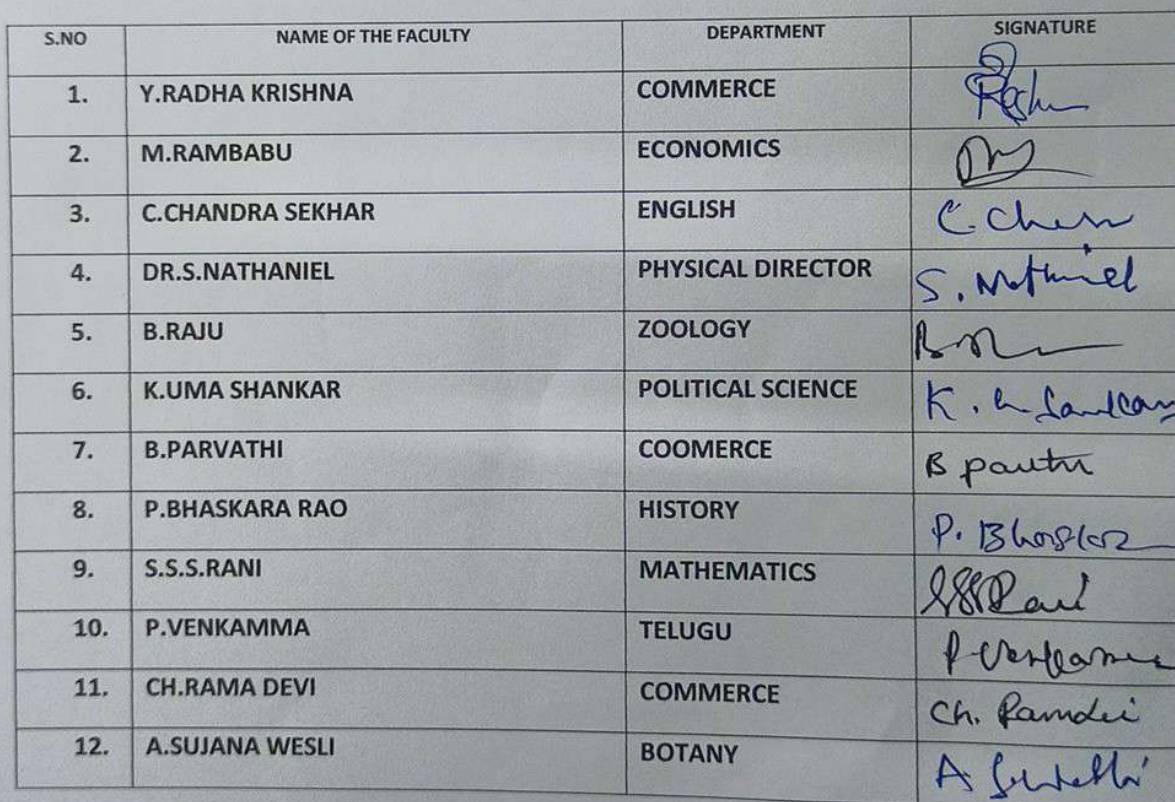 S.NO NAME OF THE FACULTY DEPARTMENT SIGNATURE
1. Y.RADHA KRISHNA COMMERCE
2. M.RAMBABU ECONOMICS
3. C.CHANDRA SEKHAR ENGLISH C.
4. DR.S.NATHANIEL PHYSICAL DIRECTOR S.
5. B.RAJU ZOOLOGY
6. K.UMA SHANKAR POLITICAL SCIENCE K.
7. B.PARVATHI COOMERCE B
8. P.BHASKARA RAO HISTORY P.
9. S.S.S.RANI MATHEMATICS
10. P.VENKAMMA TELUGU
11. CH.RAMA DEVI COMMERCE Ch.
12. A.SUJANA WESLI BOTANY A